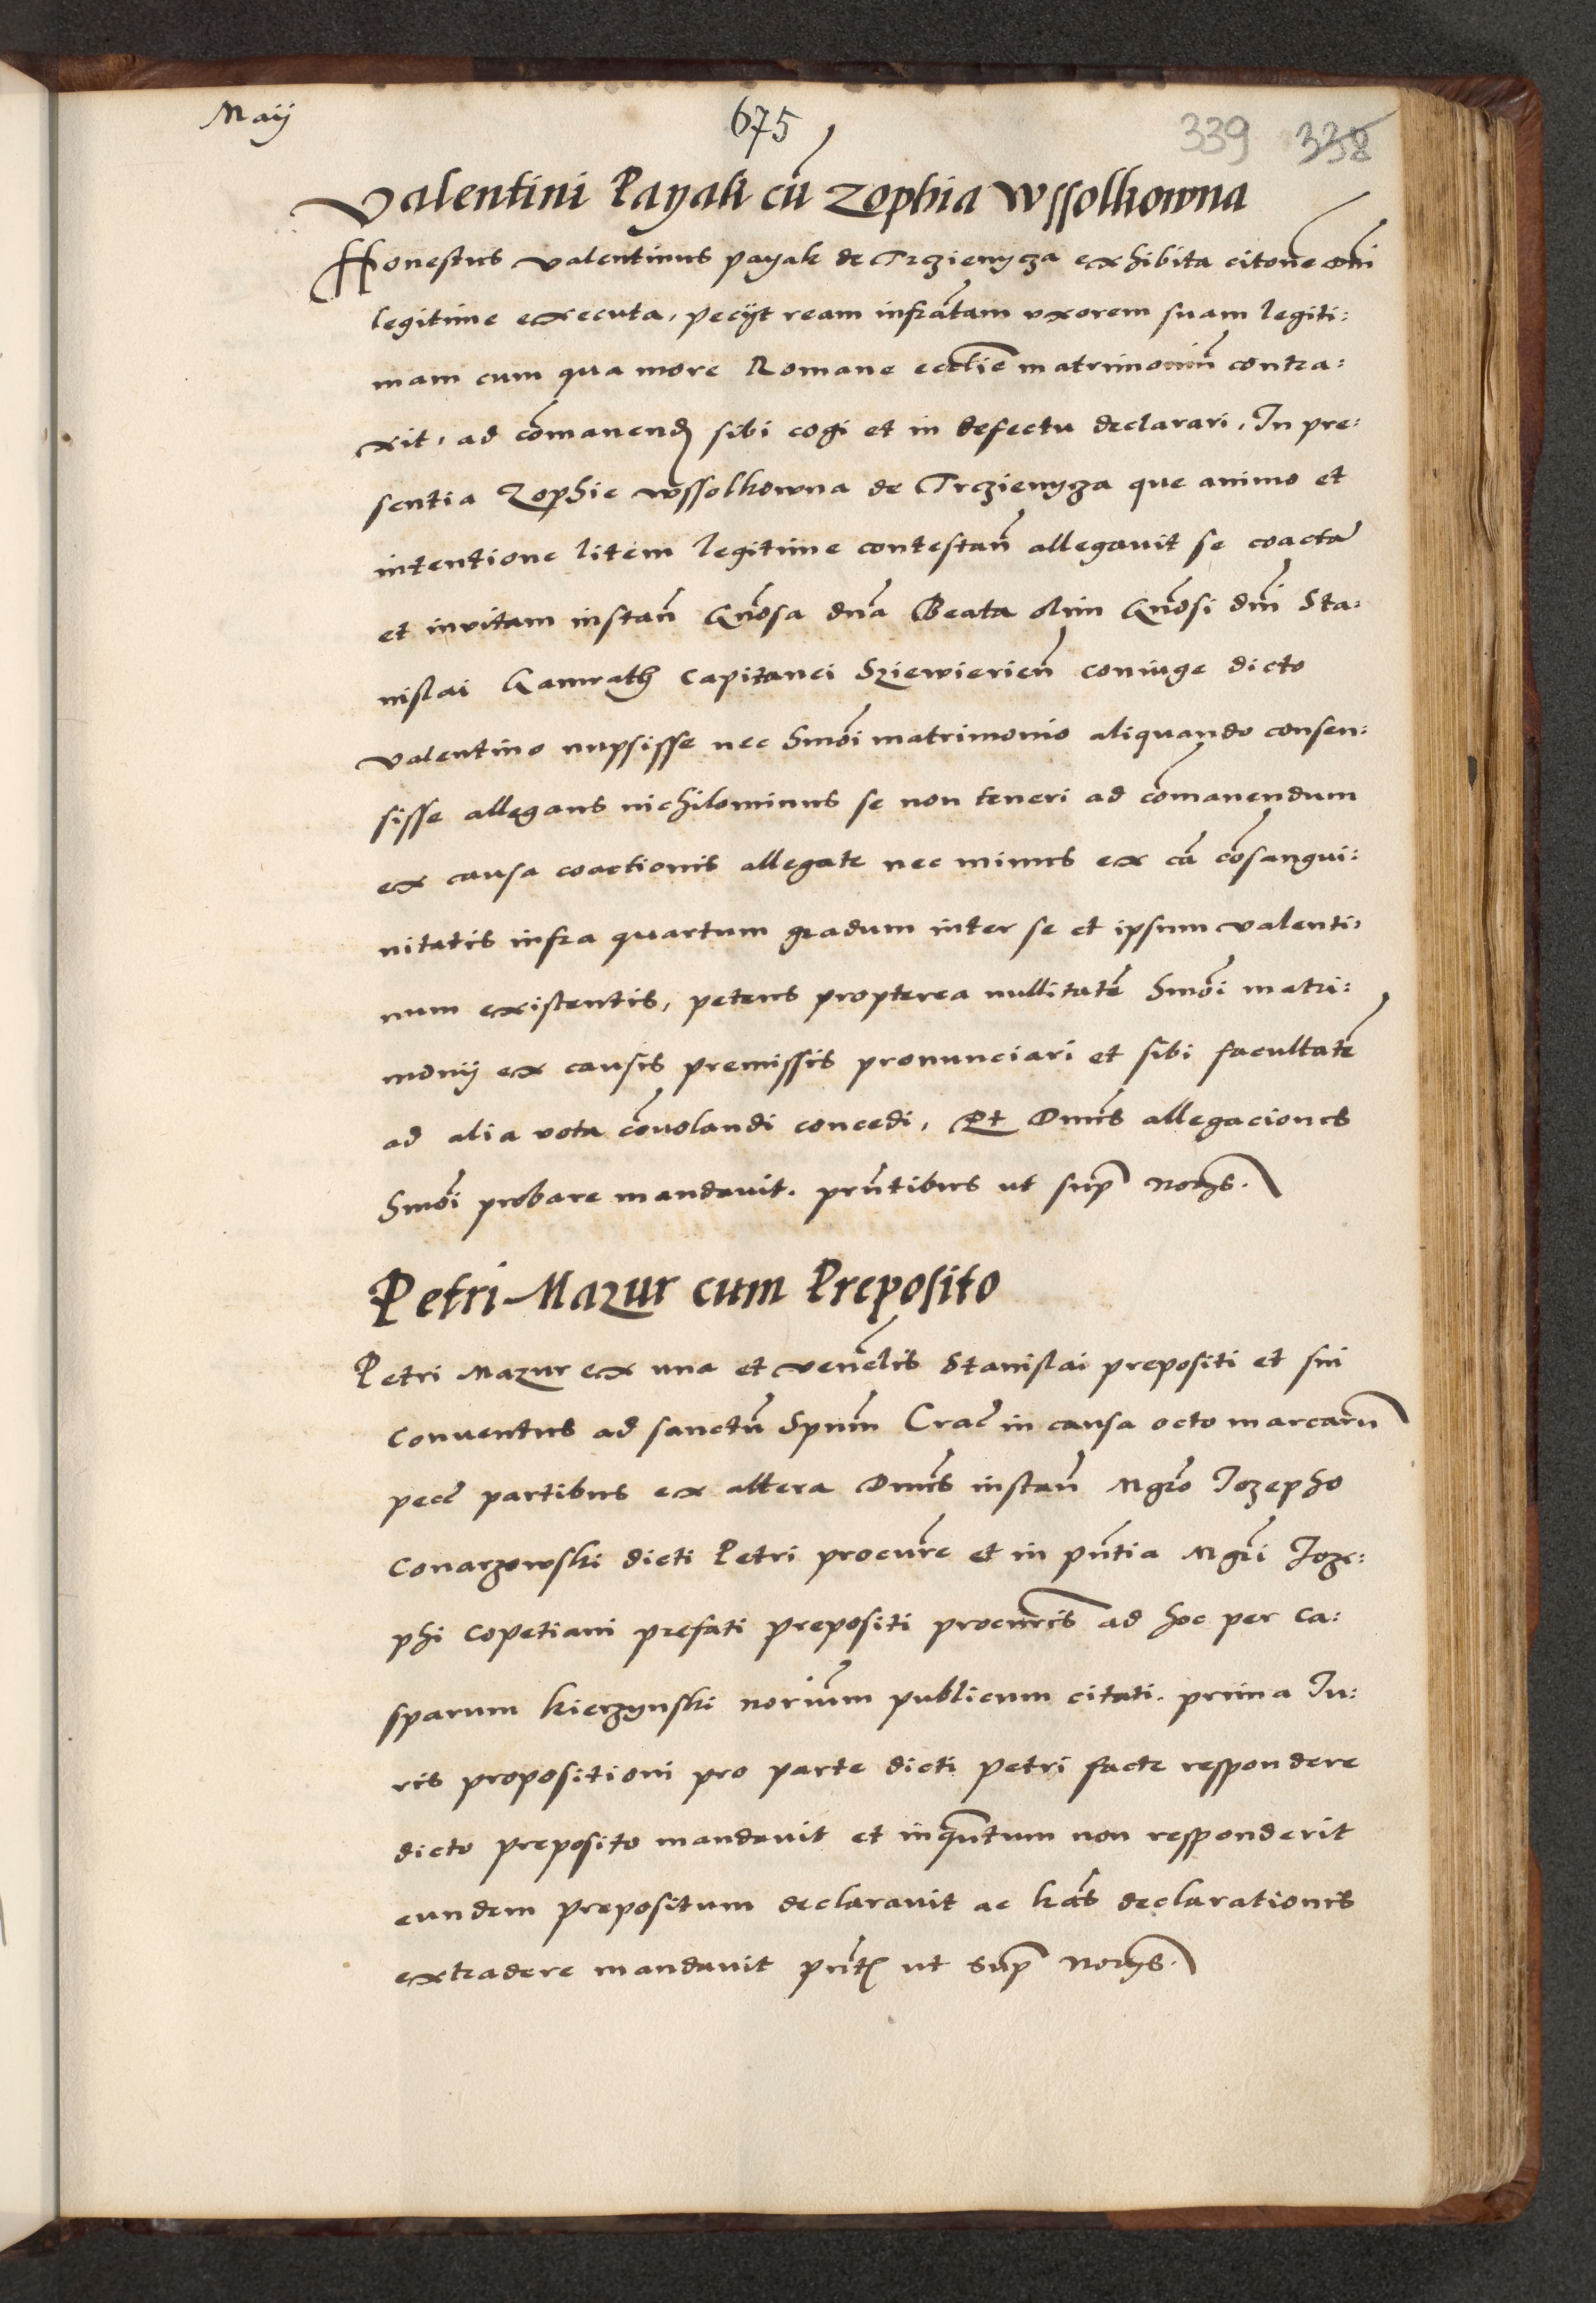 Maij
675
339 338
Valentini Payak cū Zophia Wssolkowna
Honestus Valentinus payak de Trzienycza exhibita citone
legitime executa, pecijt ream infrātam uxorem suam legiti:
mam cum qua more Romane ecclie matrimoniū contra:
xit, ad cōmanend sibi cogi et in defectu declarari, In pre:
sentia Zophie Wssolkowna de Trczienycza que animo et
intentione litem legitime contestan̄ allegavit se coactā
et invitam instan̄ Gnosa dna Beata olim Gnosi dni Sta:
nislai Gamrath Capitanei Sziewierien̄ coniuge dicto
Valentino nupsisse nec hmōi matrimonio aliquando consen:
sisse allegans nichilominus se non teneri ad cōmanendum
ex causa coactionis allegate nec minus ex cā cōsangui:
nitatis infra quartum gradum inter se et ipsum Valenti:
num existentis, petens propterea nullitatē hmōi matri:
monij ex causis premissis pronunciari et sibi facultatē
ad alia vota cōvolandi concedi, Et Dnus allegaciones
hmōi probare mandavit. prn̄tibus ut sup̄
Petri Mazur cum Preposito
Petri Mazur ex una et venēlis Stanislai prepositi et sui
Conventus ad sanctū Spum̄ Crac̄ in causa octo marcarū
pecc̄ partibus ex altera Dnus instan̄ Mgro Iozepho
Conarzowski dicti Petri procure et in pn̄tia Mgri Joze:
phi Copetiani prefati prepositi procuris ad hoc per Ca:
sparum kierzynski noriūm publicum citati. prima Iu:
ris propositioni pro parte dicti petri facte respondere
dicto preposito mandavit et inqn̄tum non responderit
eundem prepositum declaravit ac lrās declarationis
extradere mandavit pn̄t ut sup̄